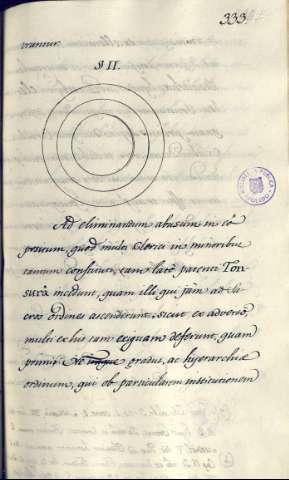 333
§ II.
Ad eliminandum abusum in có
positum, quod multi Clerici in minoribus
tantum constituti, tam latè patenti Ton
surâ incedunt, quam illi qui jàm ad Sa
cros ordines ascenderunt; sicut ex adverso,
multi ex his tam exiguam deferunt, quam
primi gradus, ac hyerarchiæ
ordinum, qui ob particularem institutionem